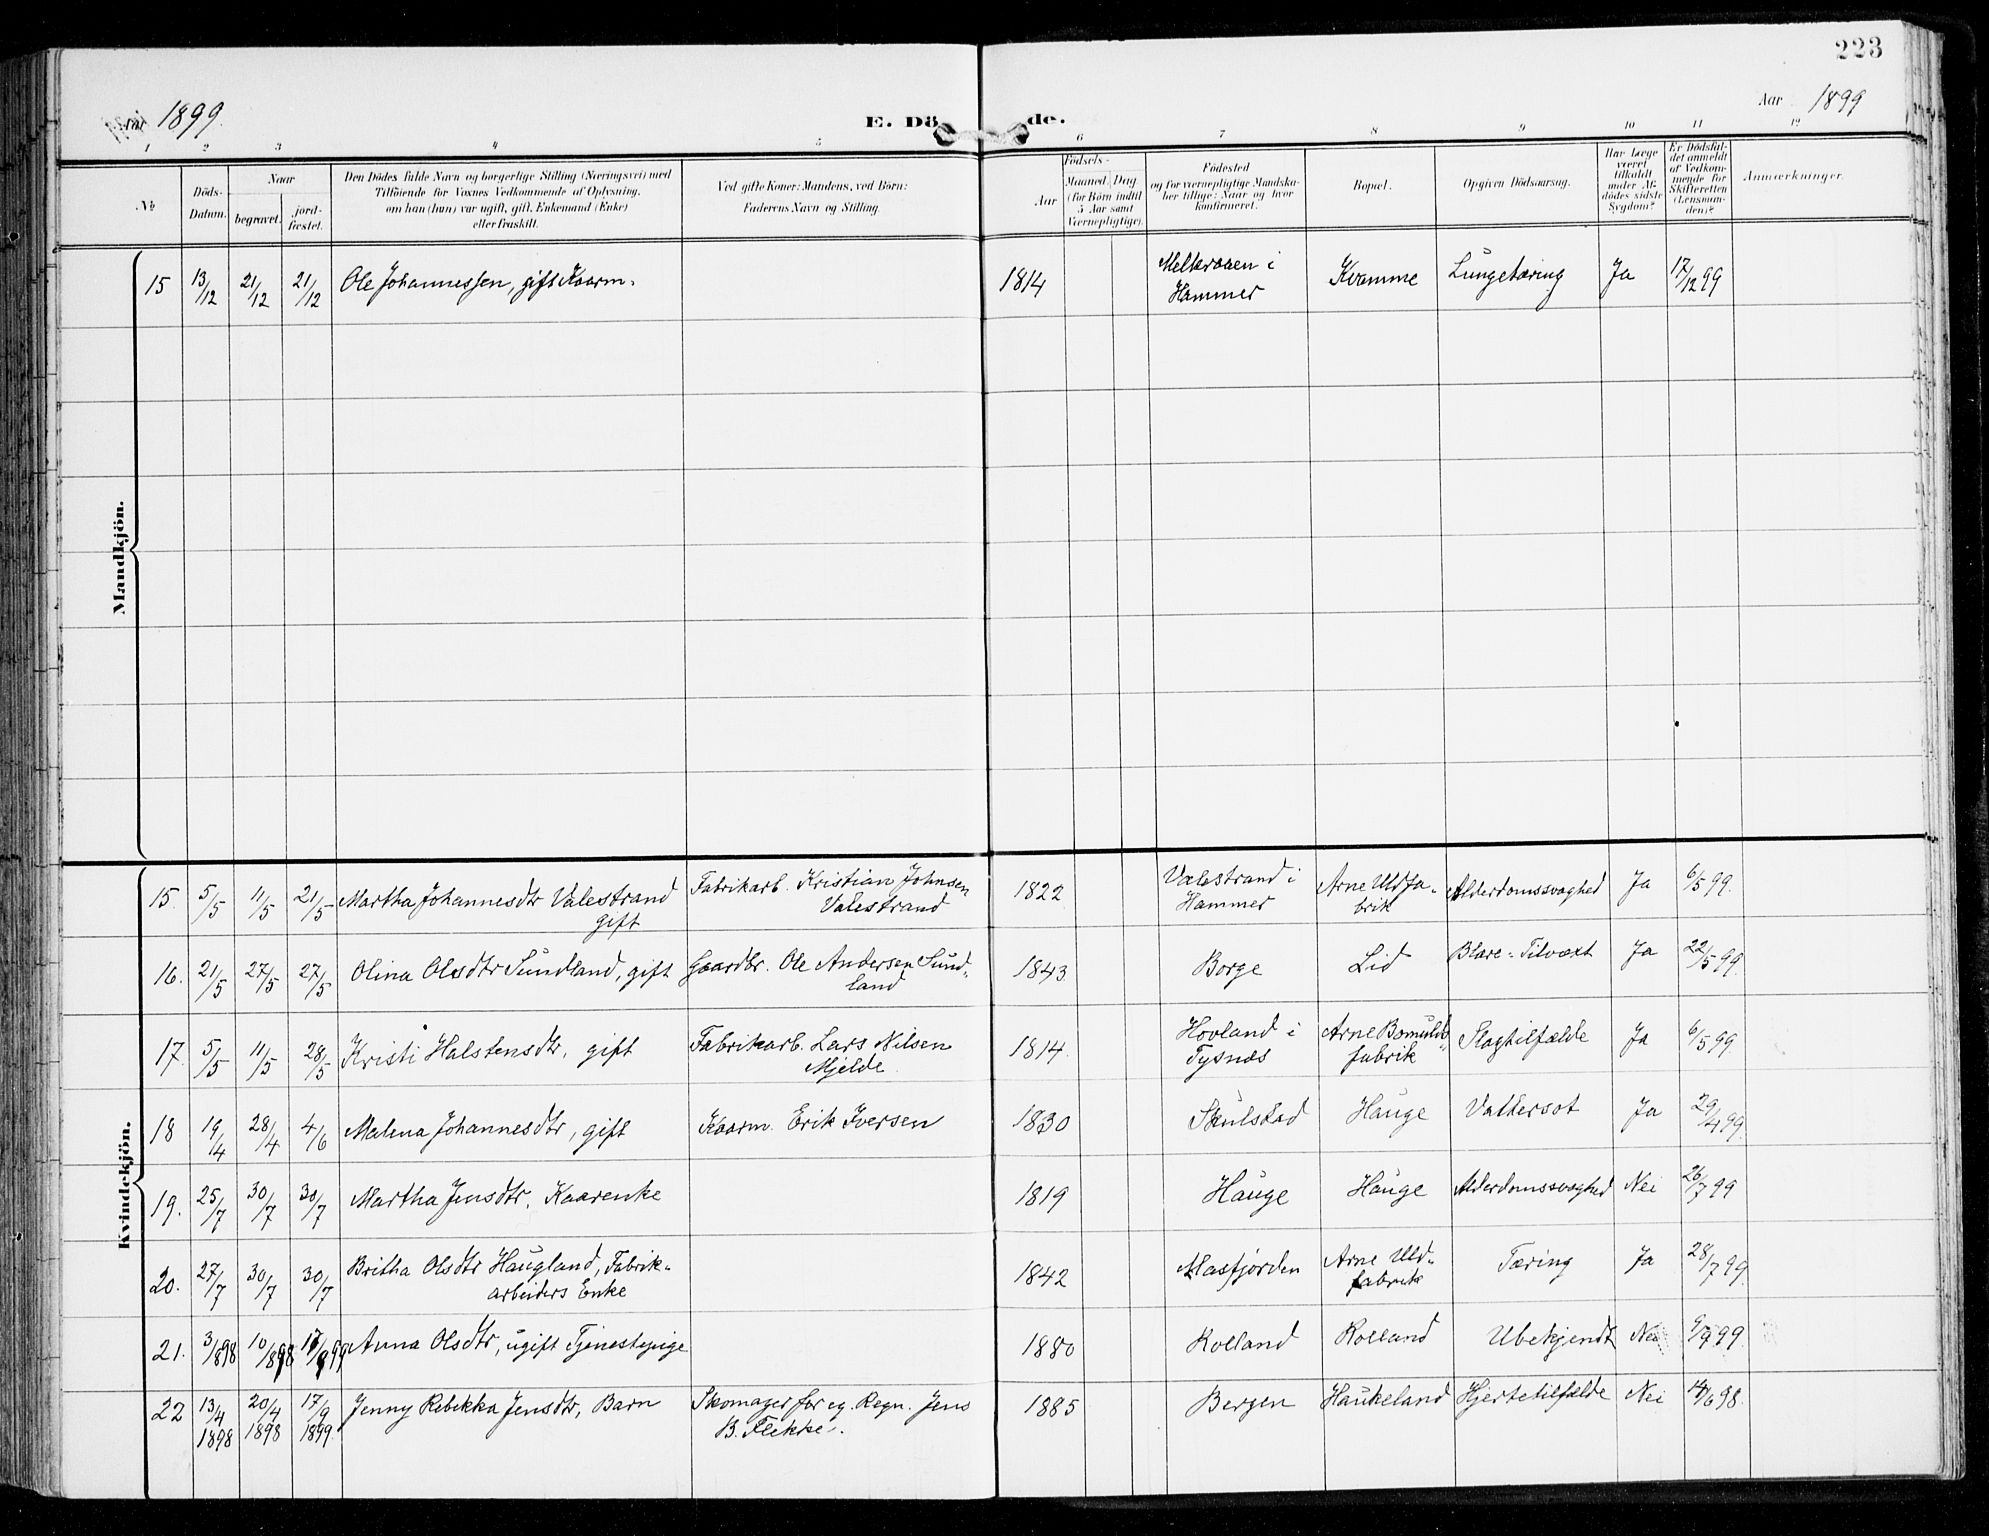 223
Aar 1899.
E. Dö
de.
Aar 1899
1 2 3 4 5 6 7 8 9 10 11 12
№
Döds-Datum.
Naar
begravet.
jord-fæstet.
Den Dödes fulde Navn og borgerlige Stilling (Næringsvei) med
Tilföiende for Voxnes Vedkommende af Oplysning,
om han (hun) var ugift, gift, Enkemand (Enke)
eller fraskilt.
Ved gifte Koner: Mandens, ved Börn:
Faderens Navn og Stilling.
Födsels-
Aar
Maaned. Dag
(for Börn indtil
5 Aar samt
Værnepligtige).
Födested
og for værnepligtige Mandska-
ber tillige: Naar og hvor
konfirmeret.
Bopæl.
Opgiven Dödsaarsag.
Har Læge
været
tilkaldt
under Af-
dödes sidste
Sygdom?
Er Dödsfal-
det anmeldt
af Vedkom-
mende for
Skifteretten
(Lensman-
den)?
Anmærkninger.
Mandkjön.
15 13/12 21/12 21/12 Ole Johannessen, gift Kaarm. 1814 Melkraaen i Hammer Kvamme Lungetæring Ja 17/12 99
Kvindekjön.
15. 5/5 11/5 21/5 Martha Johannesdtr Valestrand gift Fabrikarb. Kristian Johnsen Valestrand 1822 Valestrand i Hammer Arne Uldfabrik Alderdomssvaghed Ja 6/5 99.
16. 21/5 27/5 27/5 Olina Olsdtr Sundland, gift Gaardbr. Ole Andersen Sundland 1843 Borge Lid Blære-Tilvæxt Ja 22/5 99.
17. 5/5 11/5 28/5 Kristi Halstensdtr, gift Fabrikarb. Lars Nilsen Mjelde 1814 Hovland i Tysnæs Arne Bomulds-fabrik Slagtilfælde Ja 6/5 99.
18 19/4 28/4 4/6 Malena Johannesdtr, gift Kaarm. Erik Iversen 1830 Skulstad Hauge Vattersot Ja 29/4 99.
19. 25/7 30/7 30/7 Martha Jensdtr, Kaarenke 1819 Hauge Hauge Alderdomssvaghed Nei 26/7 99
20. 27/7 30/7 30/7 Britha Olsdtr Haugland, Fabrik-arbeiders Enke 1842 Masfjorden Arne Uld-fabrik Tæring Ja 28/7 99
21. 3/8 98 10/8 98 17/9 99 Anna Olsdtr, ugift Tjenestepige 1880 Rolland Rolland Ubekjendt Nei 9/9 99
22 13/4 1898 20/4 1898 17/9 1899. Jenny Rebekka Jensdtr, Barn Skomager for eg. Regn. Jens B. Flikke. 1885 Bergen Haukeland Hjertetilfælde Nei 14/6 98.